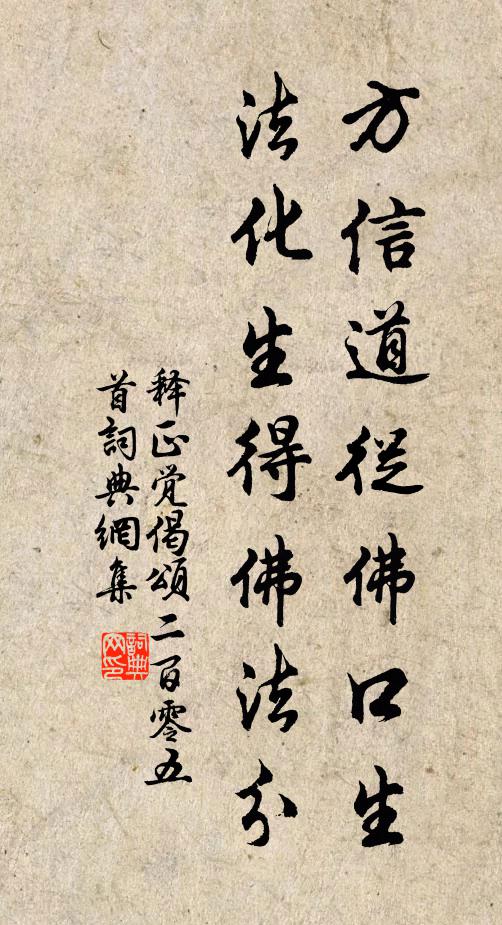 方信道從佛口生
法化生得佛法分
释正觉偈頌二百零五
首詞典網集
詞典
网印